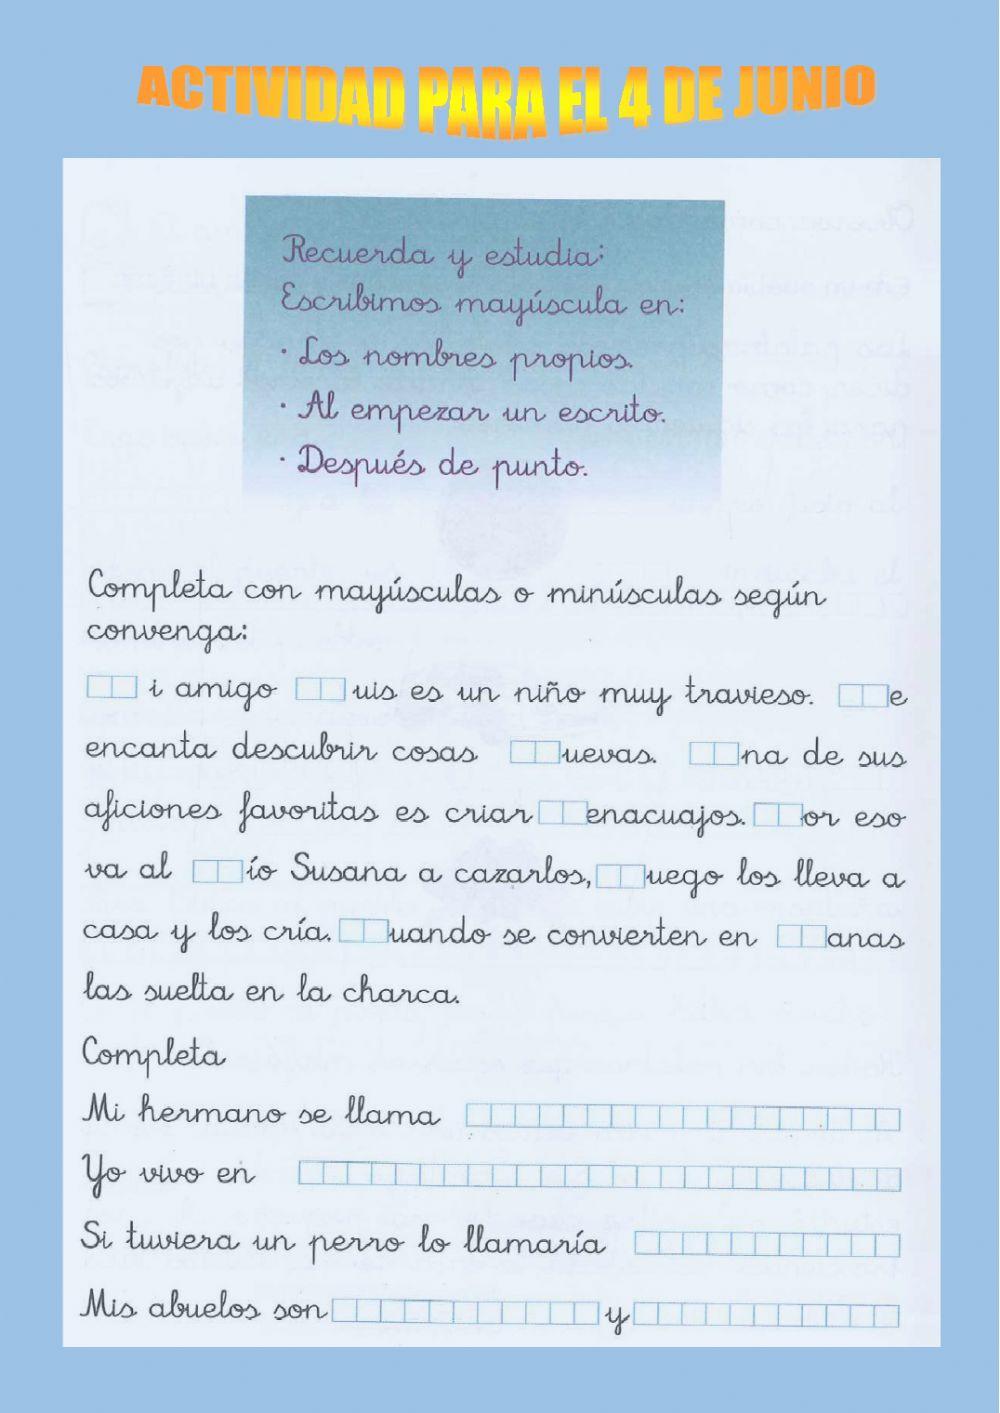 ACTIVIDAD PARA EL 4 DE JUNIO
Recuerda y estudia:
Escribimos mayúscula en:
· Los nombres propios.
· Al empezar un escrito.
· Después de punto.
Completa con mayúsculas o minúsculas según
convenga:
i amigo uis es un niño muy travieso. e
encanta descubrir cosas uevas. na de sus
aficiones favoritas es criar enacuajos. or eso
va al ío Susana a cazarlos, uego los lleva a
casa y los cría. uando se convierten en anas
las suelta en la charca.
Completa
Mi hermano se llama
Yo vivo en
Si tuviera un perro lo llamaría
Mis abuelos son y